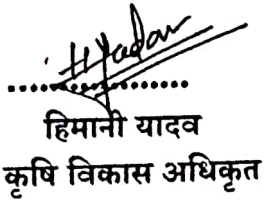 H Yadav
हिमानी यादव
कृषि विकास अधिकृत